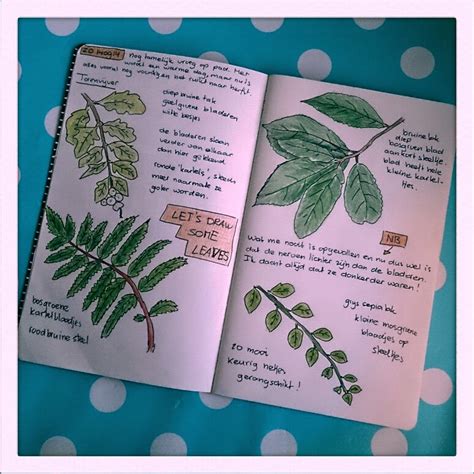 zo mooi!
nog tamelijk vroeg op pad. Het
wordt een warme dag, maar nu is
alles vooral nog vochtig en het ruikt naar herfst.
Torenvijver
diepbruine tak
geelgroene bladeren
witte besjes
de bladeren staan
verder van elkaar
dan hier getekend
ronde 'kartels', steeds
meer naarmate ze
groter worden.
LET'S DRAW
SOME
LEAVES
bosgroene
kartelblaadjes
roodbruine steel
bruine tak
diep
bosgroen blad
aan kort steeltje.
blad heeft hele
kleine kartel-
tjes.
NB
Wat me nooit is opgevallen en nu dus wel is
dat de nerven lichter zijn dan de bladeren.
Ik dacht altijd dat ze donkerder waren!
grijs tak
kleine mosgroene
blaadjes op
steeltjes
zo mooi
keurig netjes
gerangschikt!